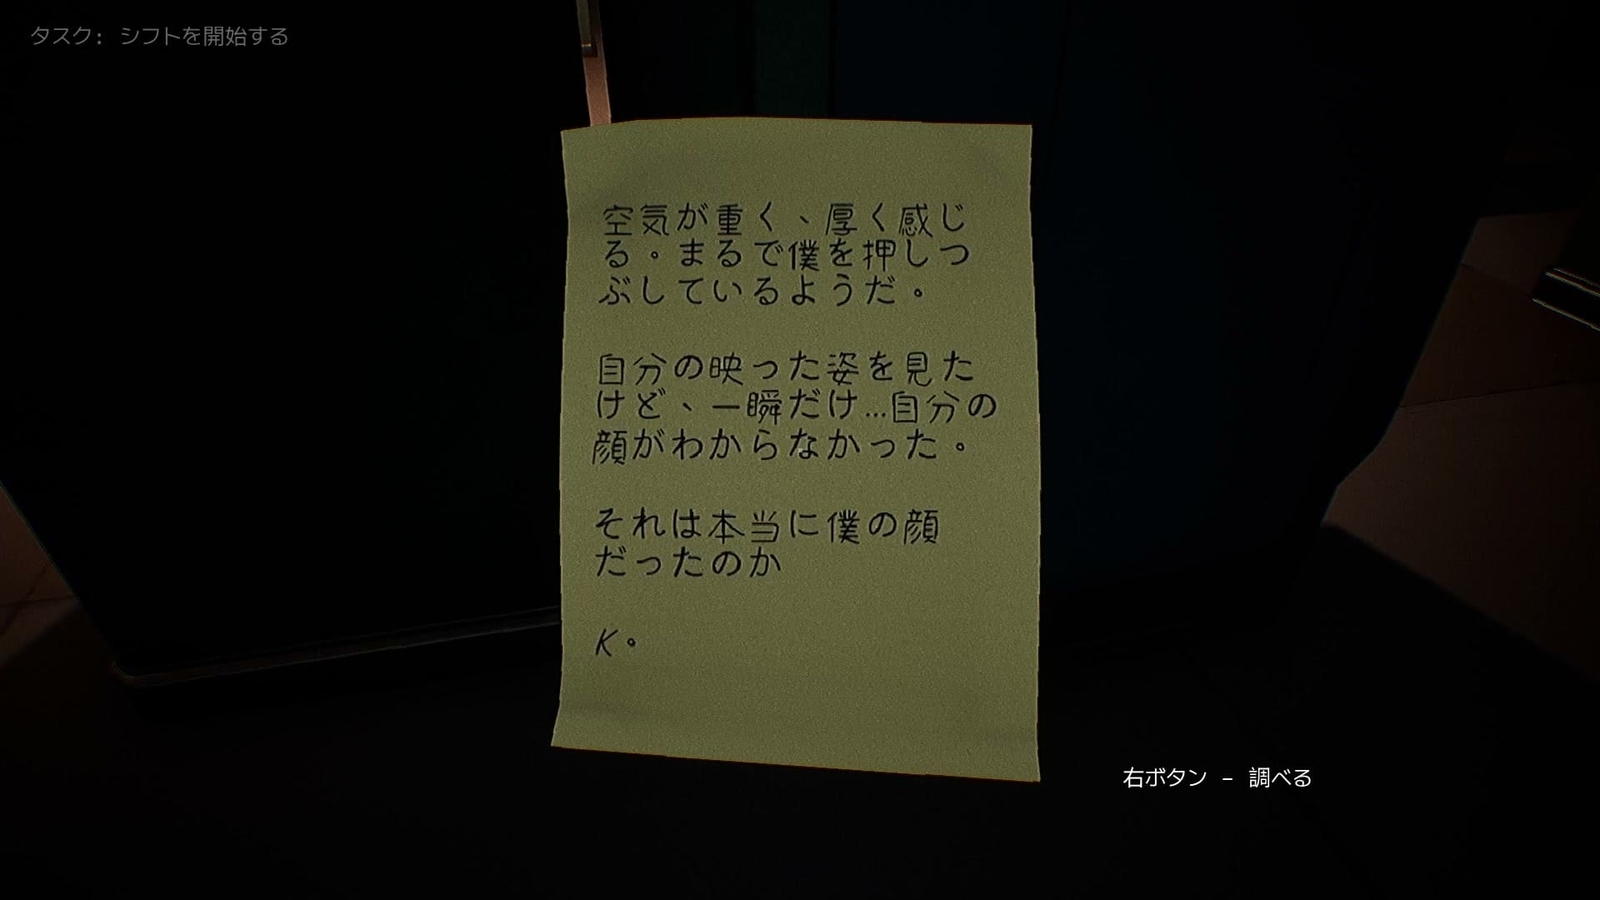 タスク: シフトを開始する
空気が重く、厚く感じ
る。まるで僕を押しつ
ぶしているようだ。
自分の映った姿を見た
けど、一瞬だけ...自分の
顔がわからなかった。
それは本当に僕の顔
だったのか
K。
右ボタン - 調べる